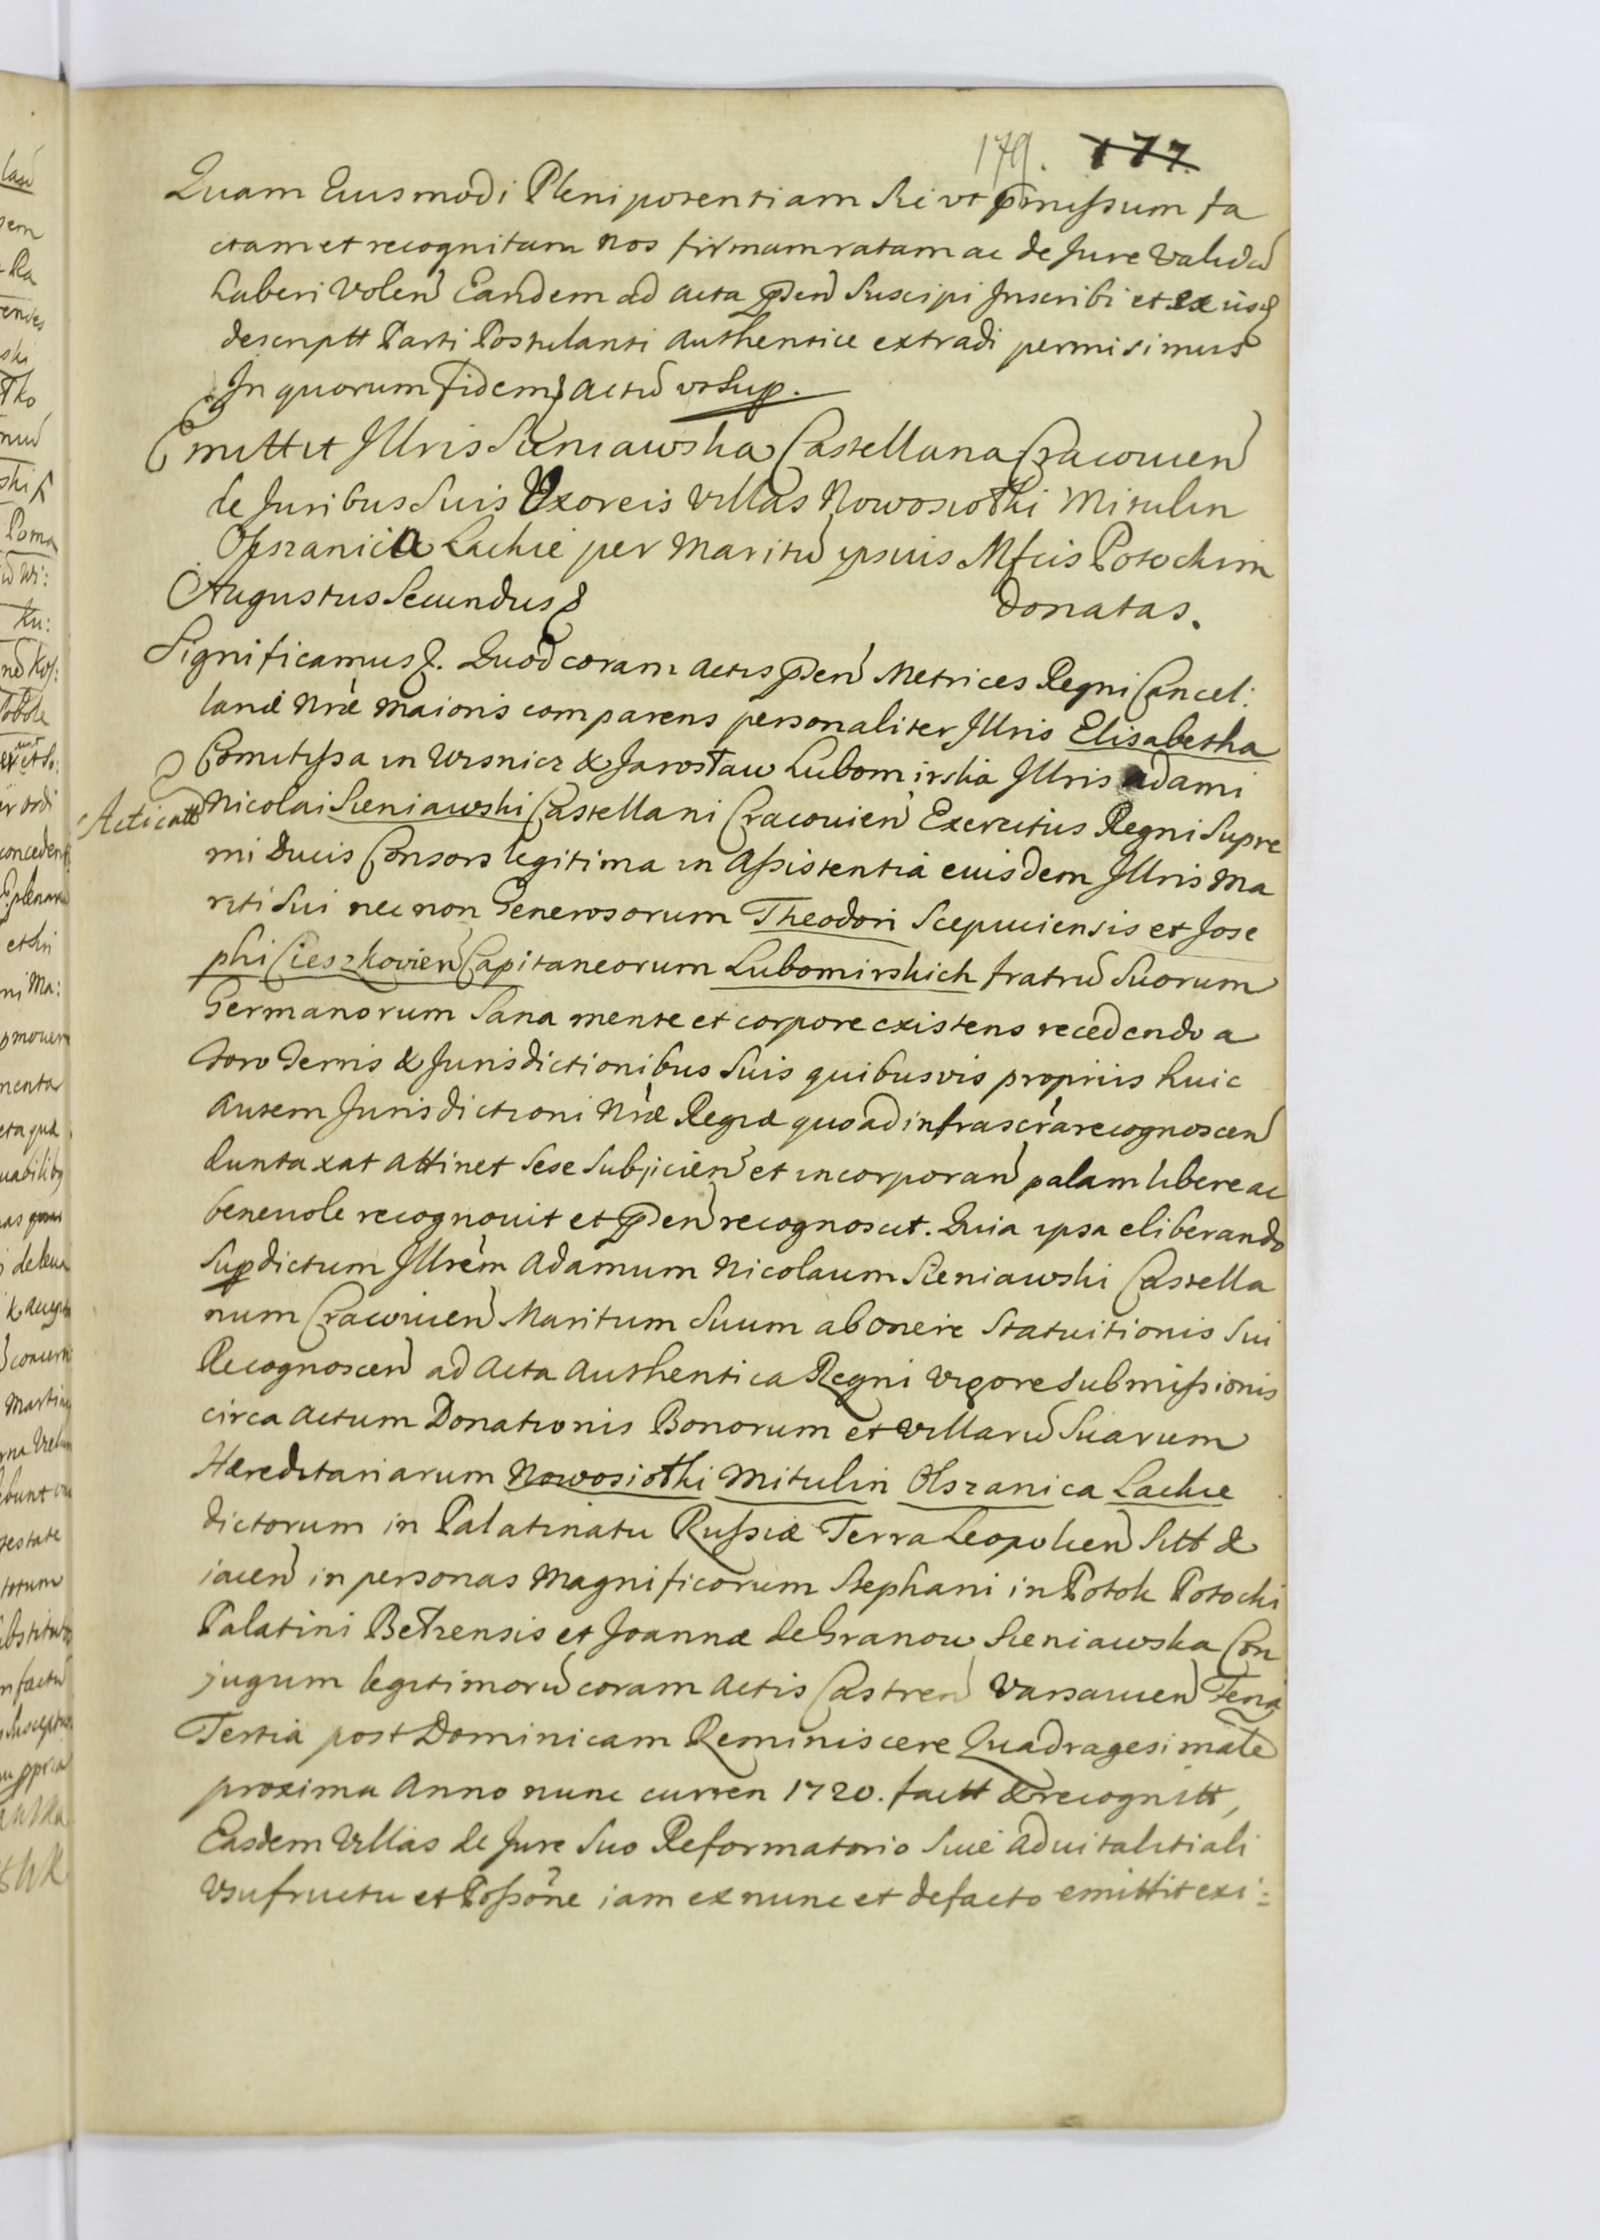 179. 177.
Quam Eiusmodi Plenipotentiam Sic ut pmissum fa
ctam et recognitam Nos firmam ratam ac de Jure validã
haberi volen Eandem ad acta pñen Suscipi Inscribi et ex iisq
descriptt Parti Postulanti authentice extradi permisimus
In quorum fidem actũ ut Sup.
Emittit Illris Sieniawska Castellana Cracouien
de Juribus Suis Uxoreis Villas Nowosiołki Mitulin
Olszanica Lackie per Maritũ ipsius Mfcis Potockim
Augustus Secundus donatas.
Significamus. Quod coram actis pñen Metrices Regni Cancel:
lariæ Nræ Maioris comparens personaliter Illris Elisabetha
Comitissa in Wisnicz & Jarosław Lubomirska Illris adami
Acticatt
Nicolai Sieniawski Castellani Cracouien Exercitus Regni Supre
mi Ducis Consors legitima in Assistentia eiusdem Illris Ma
riti Sui nec non Generosorum Theodori Scepuciensis et Jose
phi Cieszkovien Capitaneorum Lubomirskich fratrũ Suorum
Germanorum Sana mente et corpore existens recedendo a
foro Terris & Jurisdictionibus Suis quibusvis propriis huic
autem Jurisdictioni Nræ Regiæ quoad infrascrã recognoscen
duntaxat attinet Sese Subjicien et incorporan palam libere ac
beneuole recognouit et pñen recognoscit. Quia ipsa eliberando
Supdictum Illrem Adamum Nicolaum Sieniawski Castella
num Cracouien Maritum Suum ab onere Statuitionis Sui
Recognoscen ad Acta Authentica Regni Vigore Submissionis
circa actum Donationis Bonorum et Villarũ Suarum
Hæreditariarum Nowosiołki Mitulin Olszanica Lackie
dictorum in Palatinatu Russiæ Terra Leopolien Sitt &
iacen in personas Magnificorum Stephani in Potok Potocki
Palatini Bełzensis et Joannæ de Granow Sieniawska Con
jugum legitimorũ coram Actis Castren Varsauien Feria
Tertia post Dominicam Reminiscere Quadragesimale
proxima Anno nunc curren 1720. factt & recognitt,
Easdem Villas de Jure Suo Reformatorio Siue aduitalitiali
Usufructu et Possõne iam ex nunc et defacto emittit exi=